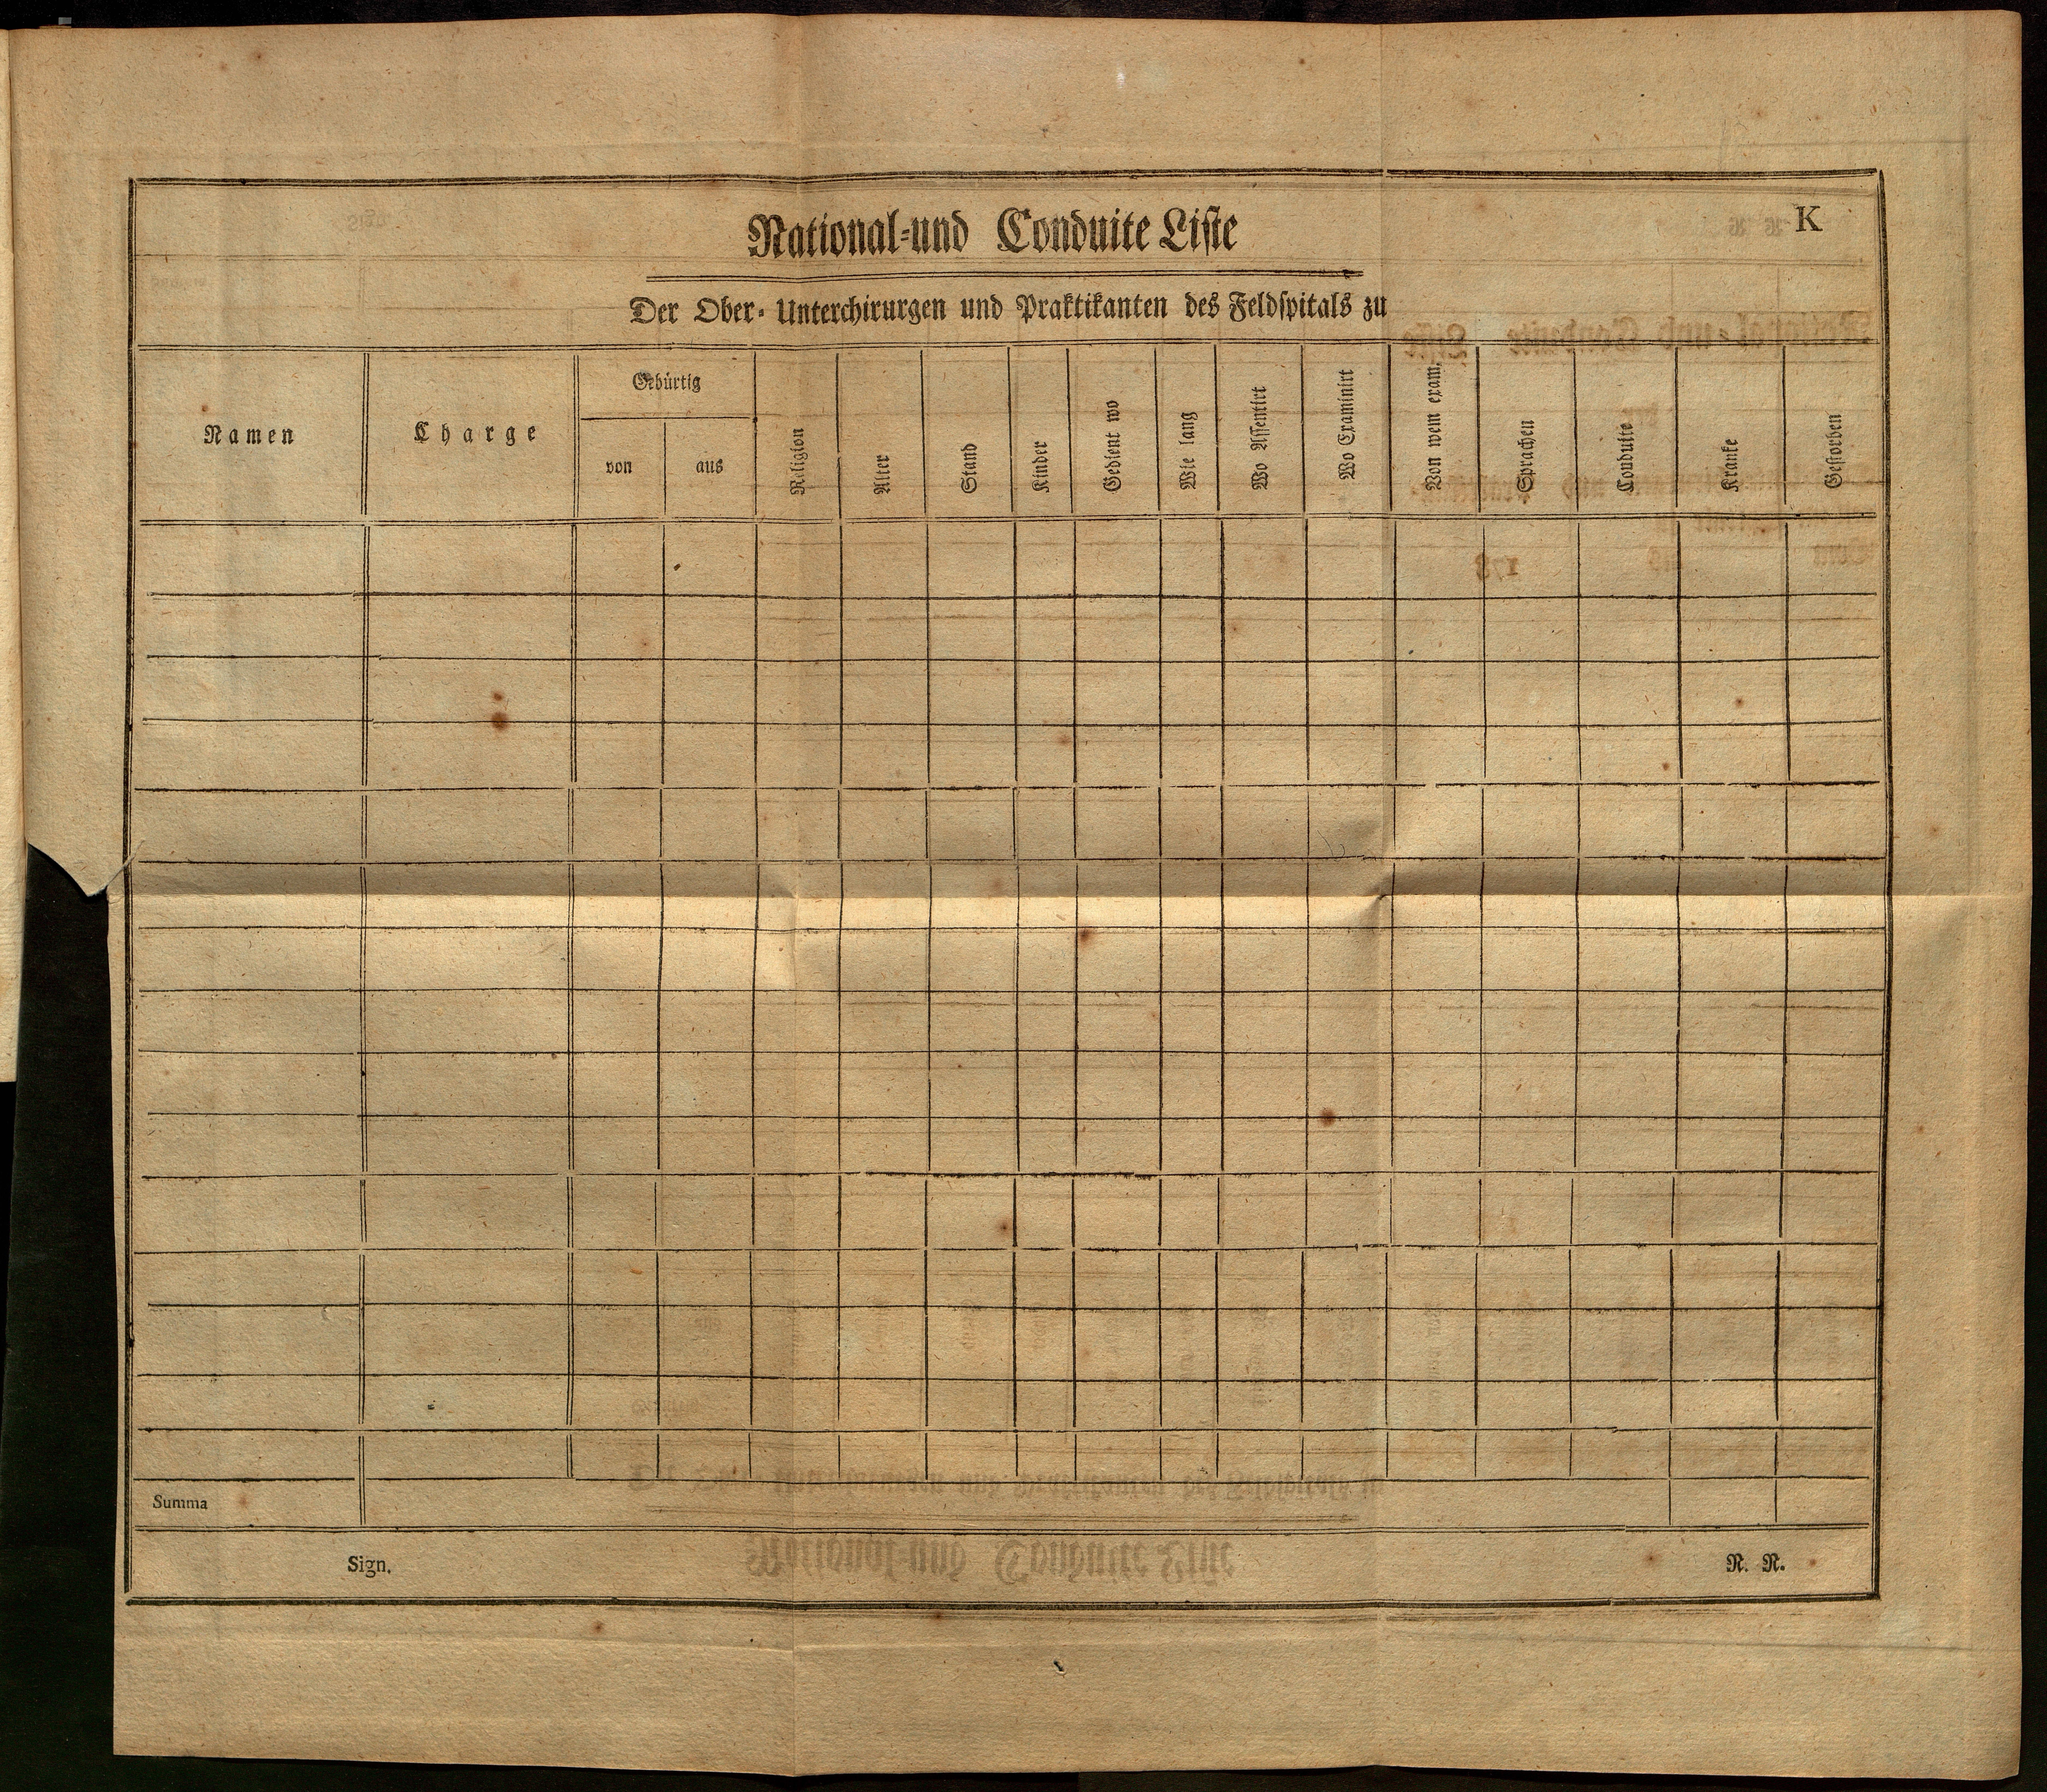 K
National-und Conduite Liste
Der Ober- Unterchirurgen und Praktikanten des Feldspitals zu
Namen
Charge
Gebürtig
von
aus
Religion
Alter
Stand
Kinder
Gedient wo
Wie lang
Wo Assentirt
Wo Examinirt
Von wem exam.
Sprachen
Conduite
Kranke
Gestorben
Summa
Sign.
N. N.